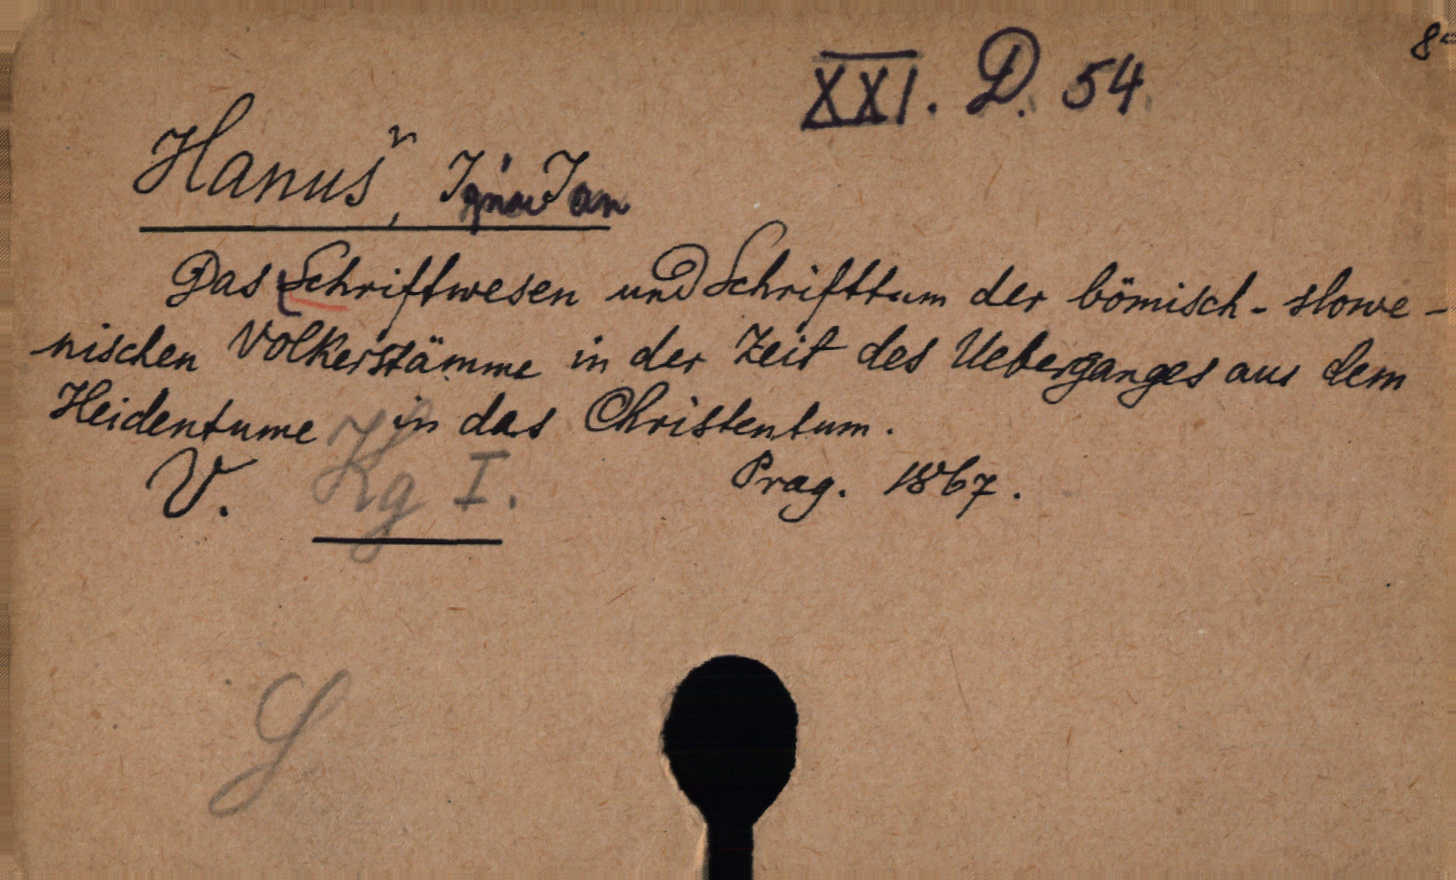 8°
XXI. D. 54
Hanuš, Ignác Jan
Das Schriftwesen und Schrifttum der bömisch-slowe-
nischen Volkerstämme in der Zeit des Ueberganges aus dem
Heidentume in das Christentum.
V. Kg I. Prag. 1867.